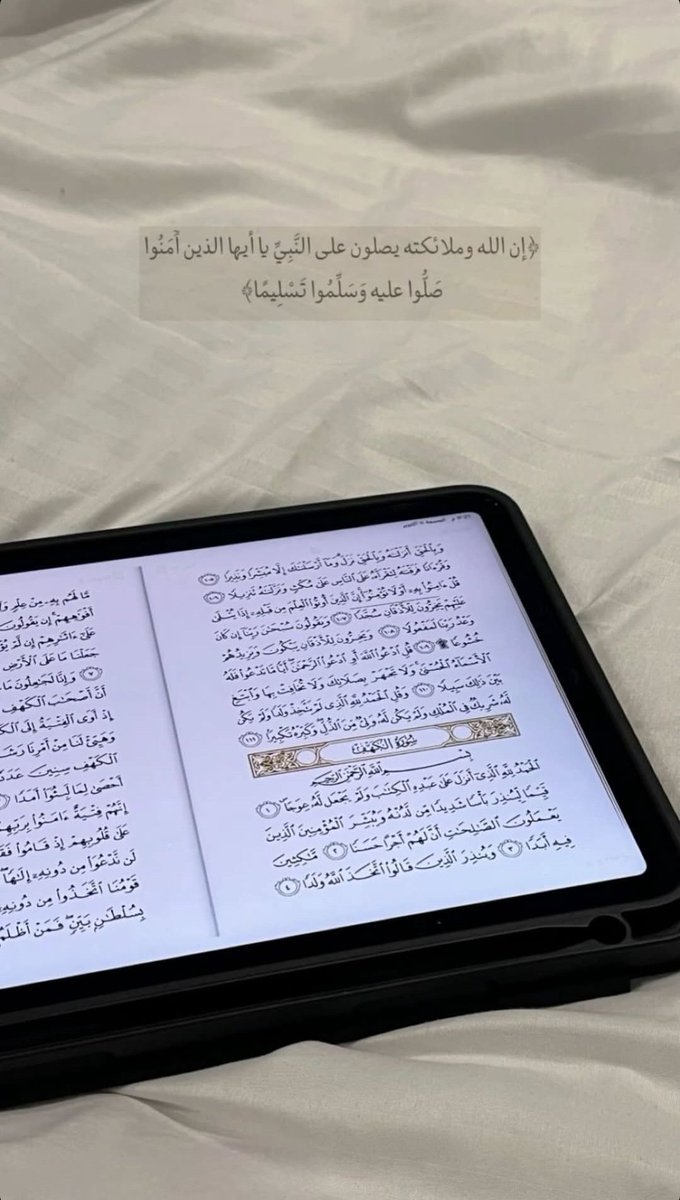 ﴿إن الله وملائكته يصلون على النَّبِيِّ يا أيها الذين آمَنُوا
صَلُّوا عليه وَسَلِّمُوا تَسْلِيمًا﴾
وَبِٱلْحَقِّ أَنزَلْنَٰهُ وَبِٱلْحَقِّ نَزَلَ وَمَآ أَرْسَلْنَٰكَ إِلَّا مُبَشِّرًا وَنَذِيرًا ١٠٥
وَقُرْءَانًا فَرَقْنَٰهُ لِتَقْرَأَهُۥ عَلَى ٱلنَّاسِ عَلَىٰ مُكْثٍ وَنَزَّلْنَٰهُ تَنزِيلًا ١٠٦
قُلْ ءَامِنُوا۟ بِهِۦٓ أَوْ لَا تُؤْمِنُوٓا۟ إِنَّ ٱلَّذِينَ أُوتُوا۟ ٱلْعِلْمَ مِن قَبْلِهِۦٓ إِذَا يُتْلَىٰ
عَلَيْهِمْ يَخِرُّونَ لِلْأَذْقَانِ سُجَّدًا ١٠٧ وَيَقُولُونَ سُبْحَٰنَ رَبِّنَآ إِن كَانَ
وَعْدُ رَبِّنَا لَمَفْعُولًا ١٠٨ وَيَخِرُّونَ لِلْأَذْقَانِ يَبْكُونَ وَيَزِيدُهُمْ
خُشُوعًا ۩ ١٠٩ قُلِ ٱدْعُوا۟ ٱللَّهَ أَوِ ٱدْعُوا۟ ٱلرَّحْمَٰنَ أَيًّا مَّا تَدْعُوا۟ فَلَهُ
ٱلْأَسْمَآءُ ٱلْحُسْنَىٰ وَلَا تَجْهَرْ بِصَلَاتِكَ وَلَا تُخَافِتْ بِهَا وَٱبْتَغِ
بَيْنَ ذَٰلِكَ سَبِيلًا ١١٠ وَقُلِ ٱلْحَمْدُ لِلَّهِ ٱلَّذِى لَمْ يَتَّخِذْ وَلَدًا وَلَمْ يَكُن
لَّهُۥ شَرِيكٌ فِى ٱلْمُلْكِ وَلَمْ يَكُن لَّهُۥ وَلِىٌّ مِّنَ ٱلذُّلِّ وَكَبِّرْهُ تَكْبِيرًا ١١١
سُورَةُ الكَهْفِ
بِسْمِ ٱللَّهِ ٱلرَّحْمَٰنِ ٱلرَّحِيمِ
ٱلْحَمْدُ لِلَّهِ ٱلَّذِىٓ أَنزَلَ عَلَىٰ عَبْدِهِ ٱلْكِتَٰبَ وَلَمْ يَجْعَل لَّهُۥ عِوَجَا ١
قَيِّمًا لِّيُنذِرَ بَأْسًا شَدِيدًا مِّن لَّدُنْهُ وَيُبَشِّرَ ٱلْمُؤْمِنِينَ ٱلَّذِينَ
يَعْمَلُونَ ٱلصَّٰلِحَٰتِ أَنَّ لَهُمْ أَجْرًا حَسَنًا ٢ مَّٰكِثِينَ
فِيهِ أَبَدًا ٣ وَيُنذِرَ ٱلَّذِينَ قَالُوا۟ ٱتَّخَذَ ٱللَّهُ وَلَدًا ٤
مَّا لَهُم بِهِۦ مِنْ عِلْمٍ
أَفْوَٰهِهِمْ إِن يَقُولُونَ
عَلَىٰٓ ءَاثَٰرِهِمْ إِن لَّمْ
جَعَلْنَا مَا عَلَى ٱلْأَرْضِ
٧ وَإِنَّا لَجَٰعِلُونَ مَا
أَنَّ أَصْحَٰبَ ٱلْكَهْفِ
إِذْ أَوَى ٱلْفِتْيَةُ إِلَى
وَهَيِّئْ لَنَا مِنْ أَمْرِنَا
ٱلْكَهْفِ سِنِينَ عَدَدًا
أَحْصَىٰ لِمَا لَبِثُوٓا۟ أَمَدًا
إِنَّهُمْ فِتْيَةٌ ءَامَنُوا۟ بِرَبِّهِمْ
عَلَىٰ قُلُوبِهِمْ إِذْ قَامُوا۟
لَن نَّدْعُوَا۟ مِن دُونِهِۦٓ إِلَٰهًا
قَوْمُنَا ٱتَّخَذُوا۟ مِن دُونِهِۦٓ
بِسُلْطَٰنٍۭ بَيِّنٍ فَمَنْ أَظْلَمُ